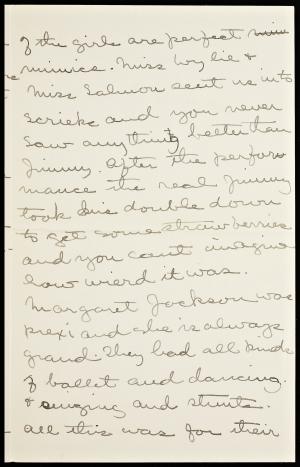 of the girls are perfect
mimics. Miss Wylie &
Miss Salmon sent us into
scrieks and you never
saw anything better than
Jimmy. After the perfor
mance the real Jimmy
took his double down
to get some strawberries
and you cant imagine
how wierd it was.
Margaret Jackson was
prexi and she is always
grand. They had all kinds
of ballet and dancing.
& singing and stunts.
All this was for their